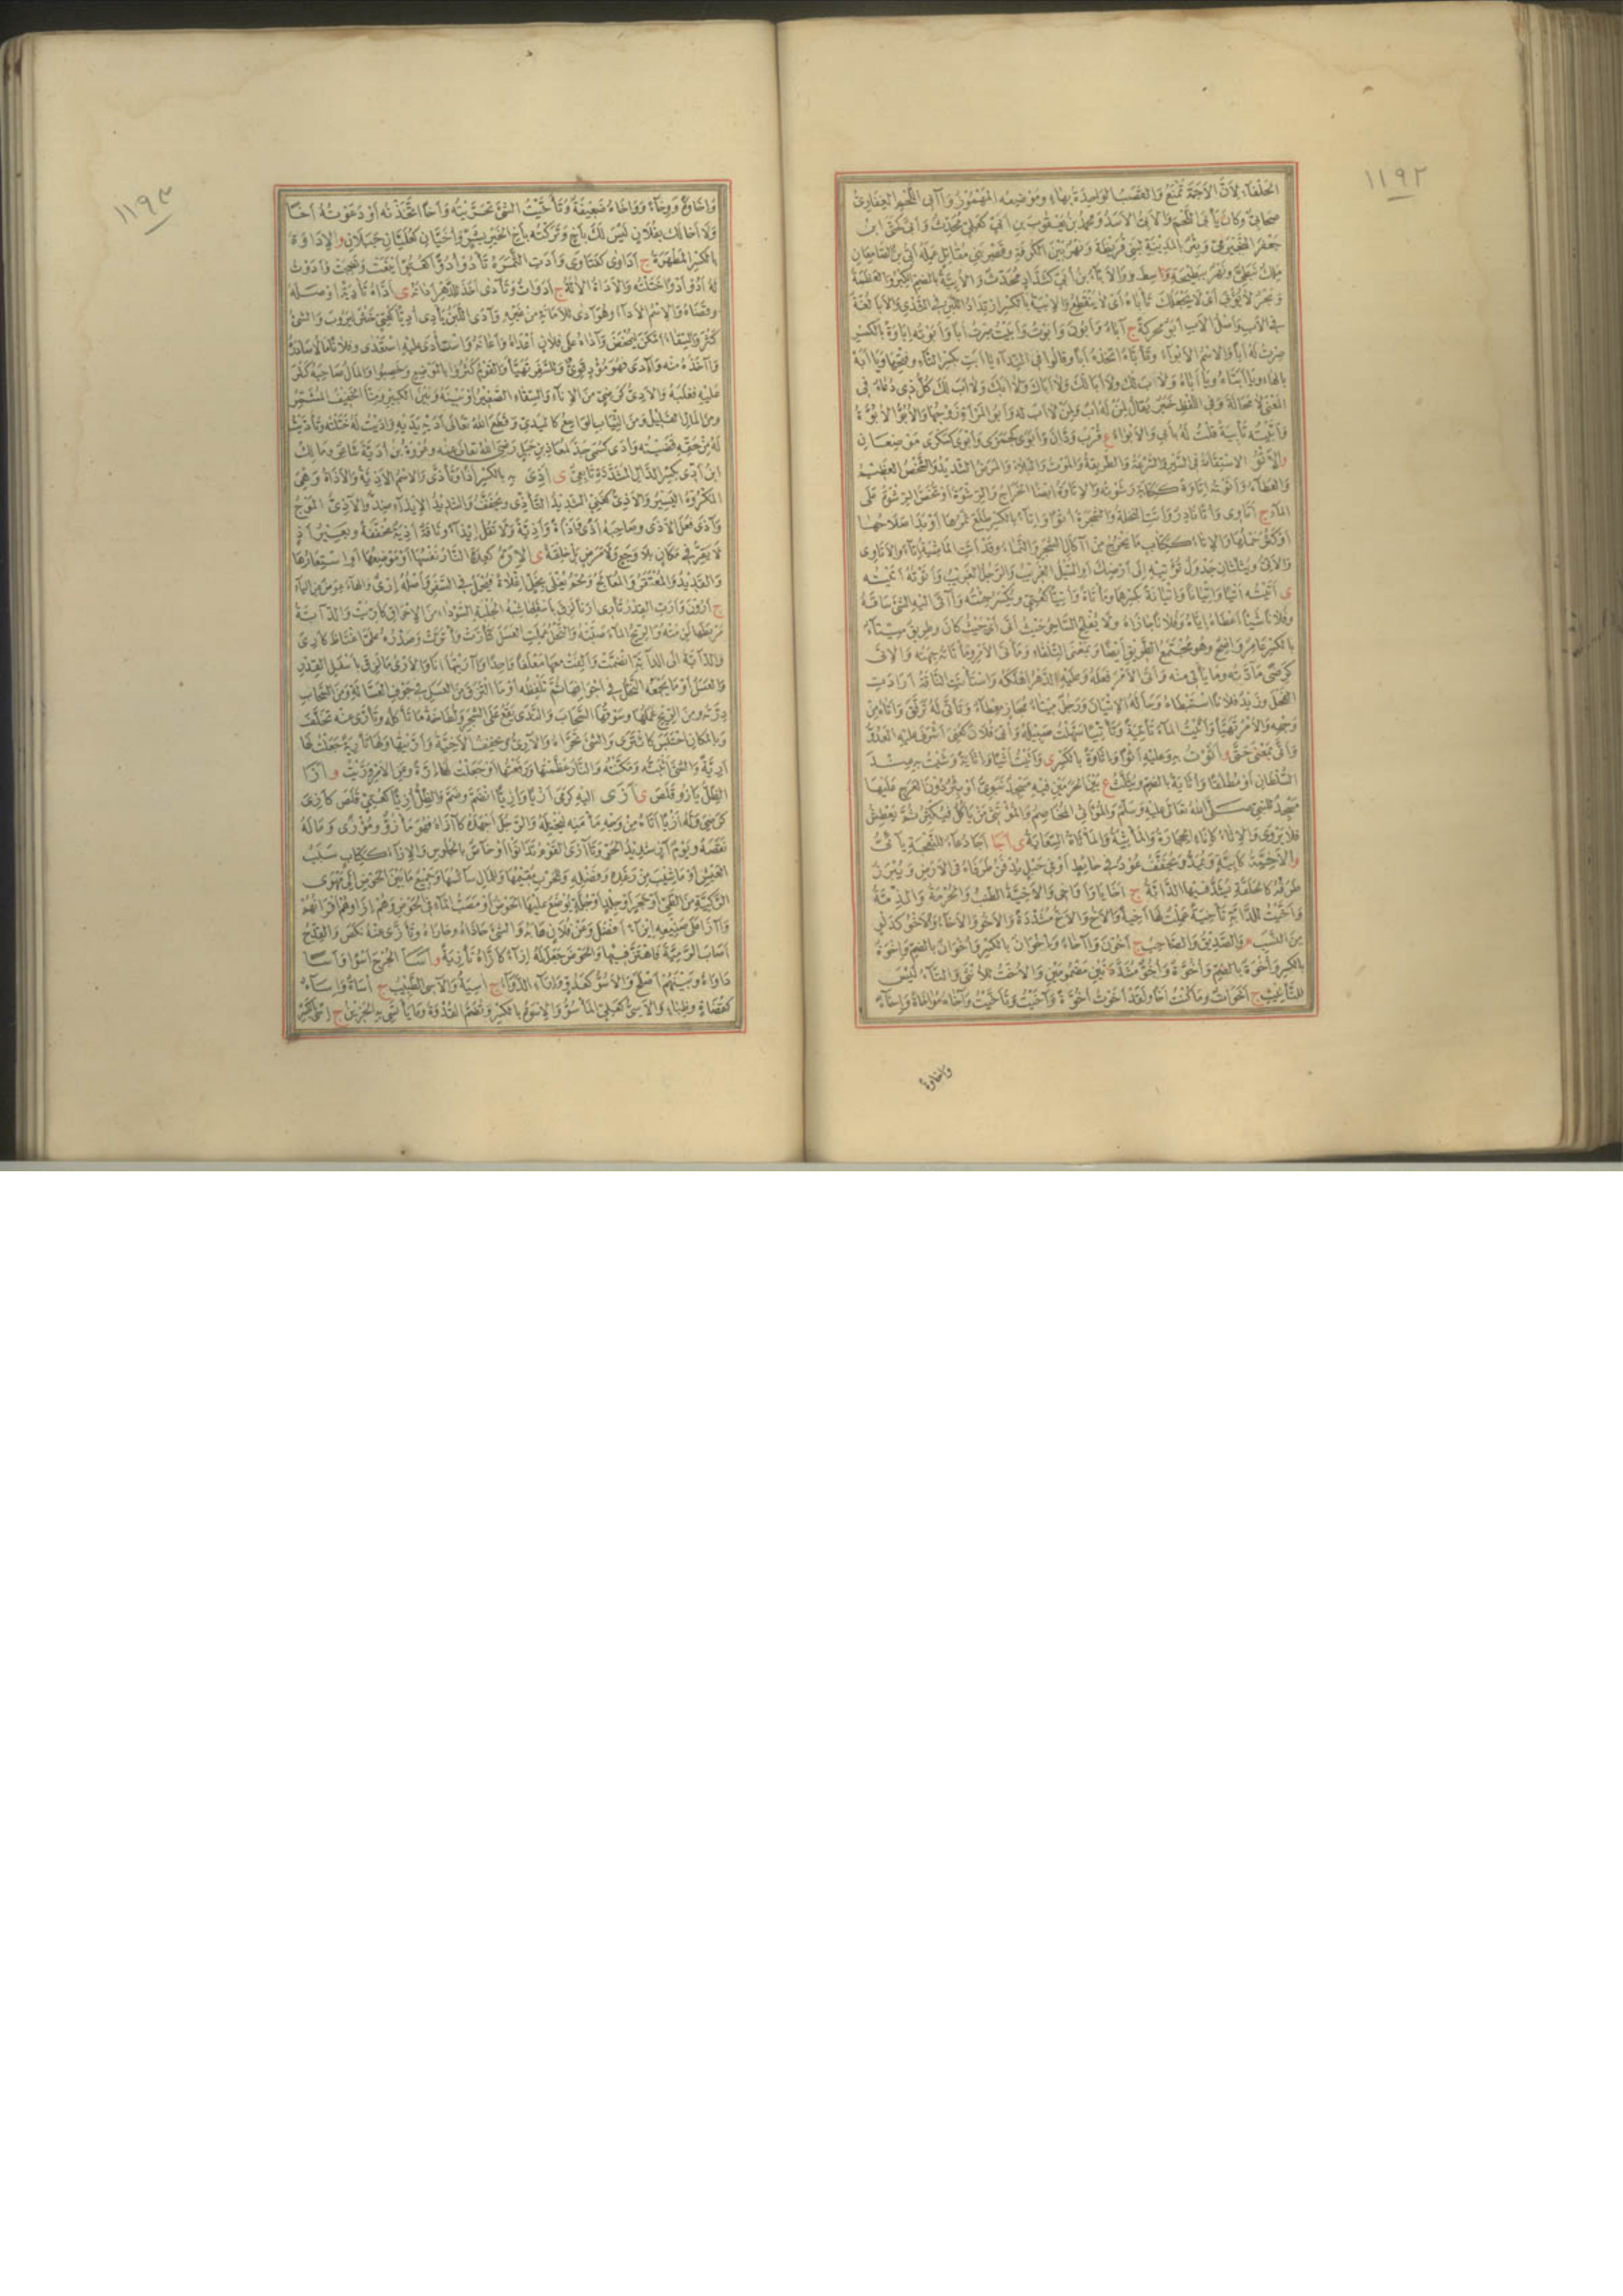 ١١٩٢
الحلفاء لأن الأجمة تمنع والقصب الواحدة بهاء وموضعه المهموز وآبى اللحم الغفاري
صحابي وكان يأبى اللحم والأبي الأسد ومحمد بن يعقوب بن أبي كعلي محدث وأبى كحتى ابن
جعفر النجيرمي وبئر بالمدينة لبني قريظة ونهر بين الكوفة وقصر بني مقاتل عمله أبى بن الصامغان
ملك نبطي ونهر ببطيحة واسط والأباء بن أبي كشداد محدث والأبية بالضم الكبر والعظمة
وبحر لا يؤبى أي لا يجعلك تأباه أي لا ينقطع والإبية بالكسر ارتداد اللبن في الثدي والأبا لغة
في الأب وأصل الأب أبو محركة ج آباء وأبون وأبوت وأبيت صرت أبا وأبوته إباوة بالكسر
صرت له أبا والاسم الأبواء وتأباه اتخذه أبا وقالوا في النداء يا أبت بكسر التاء وفتحها ويا أبه
بالهاء ويا أبتاه ويا أباه ولاب لك ولا أبا لك ولا أباك ولا أبك ولا أب لك كل ذلك دعاء في
المعنى لا محالة وفي اللفظ خبر يقال لمن له أب ولمن لا أب له وأبو المرأة زوجها والأبو الأبوة
وأبيته تأبية قلت له بأبي والأبواء ع قرب ودان وأبوى كجمزى وأبوى كسكرى موضعان
والأتو الاستقامة في السير والسرعة والطريقة والموت والبلاء والمرض الشديد والشخص العظيم
والعطاء وأتوته إتاوة ككتابة رشوته والإتاوة أيضا الخراج والرشوة أو تخص الرشوة على
الماء ج أتاوى وأتى نادر وأتت النخلة والشجرة أتوا وإتاء بالكسر طلع ثمرها أو بدا صلاحها
أو كثر حملها والإتاء ككتاب ما يخرج من آكال الشجر والنماء وقد أتت الماشية إتاء والأتاوى
والأتى ويثلثان جدول تؤتيه إلى أرضك أو السيل الغريب والرجل الغريب وأتوته أتيته
ى أتيته أتيا وإتيانا وإتيانة بكسرهما ومأتاة وأتيا كعتي ويكسر جئته وآتى إليه الشيء ساقه
وفلانا شيئا أعطاه إياه وفلانا جازاه ولا يفلح الساحر حيث أتى أي حيث كان وطريق ميتاء
بالكسر عامر واضح وهو مجتمع الطريق أيضا وبمعنى التلقاء ومأتى الأمر ومأتاته جهته والإتى
كرضى ما أتوه وما يأتى منه وأتى الأمر فعله وعليه الدهر أهلكه واستأتت الناقة أرادت
الفحل وزيد فلانا استبطأه وسأله الإتيان ورجل ميتاء مجاز معطاء وتأتى له ترفق وأتاه من
وجهه والأمر تهيأ وأتيت الماء تأتية وتأتيا سهلت سبيله وأتي فلان كعني أشرف عليه العدو
وأتى بمعنى حتى و أثوت به وعليه أثوا وإثاوة بالكسر ى وأثيت أثيا وإثاية وشيت به عند
السلطان أو مطلقا وأثاية بالضم ويثلث ع بين الحرمين فيه مسجد نبوي أو بئر دون العرج عليها
مسجد للنبي صلى الله تعالى عليه وسلم والمؤاثي المخاصم والمؤتثي من يأكل فيكثر ثم يعطش
فلا يروى والإثاء كإناء الحجارة والمأثية والمأثاة السعاية ى أجا أجا دعاء للنعجة يائي
والأخية كأبية ويشد ويخفف عود في حايط أو في حبل يدفن طرفاه في الأرض ويبرز
طرفه كالحلقة تشد فيها الدابة ج أخايا وأواخي والأخية الطنب والحرمة والذمة
وأخيت للدابة تأخية عملت لها أخية والأخ والأخ مشددة والأخو والأخا والأخو كدلو
من النسب م والصديق والصاحب ج أخون وآخاء وإخوان بالكسر وأخوان بالضم وإخوة
بالكسر وأخوة بالضم وأخوة وأخو مشددتين مضمومتين والأخت للأنثى والتاء ليس
للتأنيث ج أخوات وما كنت أخا ولقد أخوت أخوة وآخيت وتأخيت وآخاه مؤاخاة وإخاء
وإخاوة
١١٩٣
وإخاوة ووخاء وواخاه ضعيفة وتأخيت الشيء تحريته وأخا اتخذته أو دعوته أخا
ولا أخا لك بفلان ليس لك بأخ وتركته بأخ الخير بشر وأخيان كعليان جبلان و الإداوة
بالكسر المطهرة ج أداوى كفتاوى وأدت الثمرة تأدو أدوا كعتو أينعت ونضجت وأدوت
له أدو أدوا ختلته والأداة الآلة ج أدوات وتآدى أخذ للدهر أداته ى أداه تأدية أوصله
وقضاه والاسم الأداء وهو آدى للأمانة من غيره وأدى اللبن يأدى أديا كعتي خثر ليروب والشيء
كثر والسقاء أمكن ليمخض وآداه على فلان أعداه وأعانه واستأدى عليه استعدى وفلانا مالا صادره
وأخذه منه وآدى فهو مؤد قوي وللسفر تهيأ والقوم كثروا بالموضع وأخصبوا والمال صاحبه كثر
عليه فغلبه والأدي كغني من الإناء والسقاء الصغير أو بينه وبين الكبير ومنا الخفيف المشمر
ومن المال القليل ومن الثياب الواسع كاليدي وقطع الله تعالى أديه يديه وأديت له ختلته وتأديت
له من حقه قضيته وأدى كسمي جد لمعاذ بن جبل رضي الله تعالى عنه وعروة بن أدية شاعر ومالك
ابن أدي بكسر الدال المشددة تابعي ى أذي به بالكسر أذا وتأذى والاسم الأذية والأذاة وهي
المكروه اليسير والأذي كغني الشديد التأذي ويخفف والشديد الإيذاء ضد والآذي الموج
وآذى فعل الأذى وصاحبه أذى وأذاة وأذية ولا تقل إيذاء وناقة أذية مخففة وبعير أذ
لا يقر في مكان بلا وجع ولا مرض بل خلقة ى الإرة كعدة النار نفسها أو موضعها أو استعارها
والقديد والمعتقر والمعالج ولحم يغلى بخل إغلاء فيحمل في السفر وأصله إرى والهاء عوض من الياء
ج إرون وأرت القدر تأري أريا لزق بأسفلها شبه الجلبة السوداء من الإحراق كأريت والدابة
مربطها لزمته والريح الماء صبته والنحل عملت العسل كتأرت وأترت وصدره علي اغتاظ كأري
والدابة إلى الدابة انضمت وألفت معها معلفا واحدا وآريتها أنا والأري ما لزق بأسفل القدر
والعسل أو ما تجمعه النحل في أجوافها ثم تلفظه أو ما التزق من العسل في جوف العسالة ومن السحاب
درته ومن الريح عملها وسوقها السحاب والندى يقع على الشجر ولطاخة ما تأكله وتأرى عنه تخلف
وبالمكان احتبس كائترى والشيء تحراه والآري ويخفف الأخية وأريتها ولها تأرية جعلت لها
آرية والشيء أثبته ومكنته والنار عظمتها ورفعتها أو جعلت لها إرة وعن الأمر وريت و أزا
الظل يأزو قلص ى أزى إليه كرمى أزيا وأزيا انضم وضم والظل أزيا كعتي قلص كأزي
كرضي وله أزيا أتاه من وجه مأمنه ليختله والرجل أجهده كآزاه فهو مأزو ومؤزى وماله
نقصه ويوم آز شديد الحر وتآزى القوم تدانوا أو خاص بالجلوس والإزاء ككتاب سبب
العيش أو ما سبب من رغده وفضله وللحرب مقيمها وللمال سائسها وجميع ما بين الحوض إلى مهوى
الركية من الطي أو حجر أو جلد أو جلة يوضع عليها الحوض أو مصب الماء في الحوض وهم إزاؤهم أقرانهم
وآزى على صنيعه إيزاء أفضل وعن فلان هابه والشيء حاذاه وجاراه وتأزى عنه نكص والقدح
أصاب الرمية فاهتز فيها والحوض جعل له إزاء كأزاه تأزية و أسا الجرح أسوا وأسا
داواه وبينهم أصلح والأسو كعدو وإناء الدواء ج آسية والآسي الطبيب ج أساة وإساء
كقضاة وظباء والأسي كعلي المأسو والإسوة بالكسر وتضم القدوة وما يأتسي به الحزين ج إسى بكسر